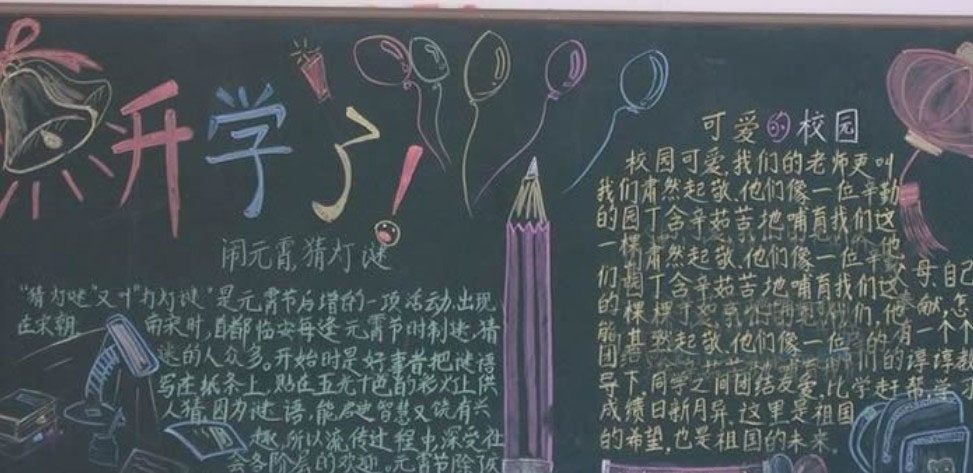 开学了!
闹元宵,猜灯谜
"猜灯谜"又叫"打灯谜"是元宵节后增的一项活动,出现
在宋朝 南宋时,首都临安每逢元宵节时制迷,猜
迷的人众多。开始时是好事者把谜语
写在纸条上,贴在五光十色的彩灯让供
人猜因为谜语,能启迪智慧又饶有兴
趣,所以流传过程中,深受社
会各阶层的欢迎。元宵节除夜
可爱的校园
校园可爱,我们的老师更叫
我们肃然起敬,他们像一位辛勤
的园丁含辛茹苦地哺育我们这
一棵肃然起敬,他们像一位辛
们园丁含辛茹苦地哺育我们这
的棵 们,他
然起敬,他们像一位
团 的谆谆
导下,同学之间团结友爱,比学赶帮,学
成绩日新月异,这里是祖国
的希望,也是祖国的未来
他
父母,自己
献,怎
有一个个